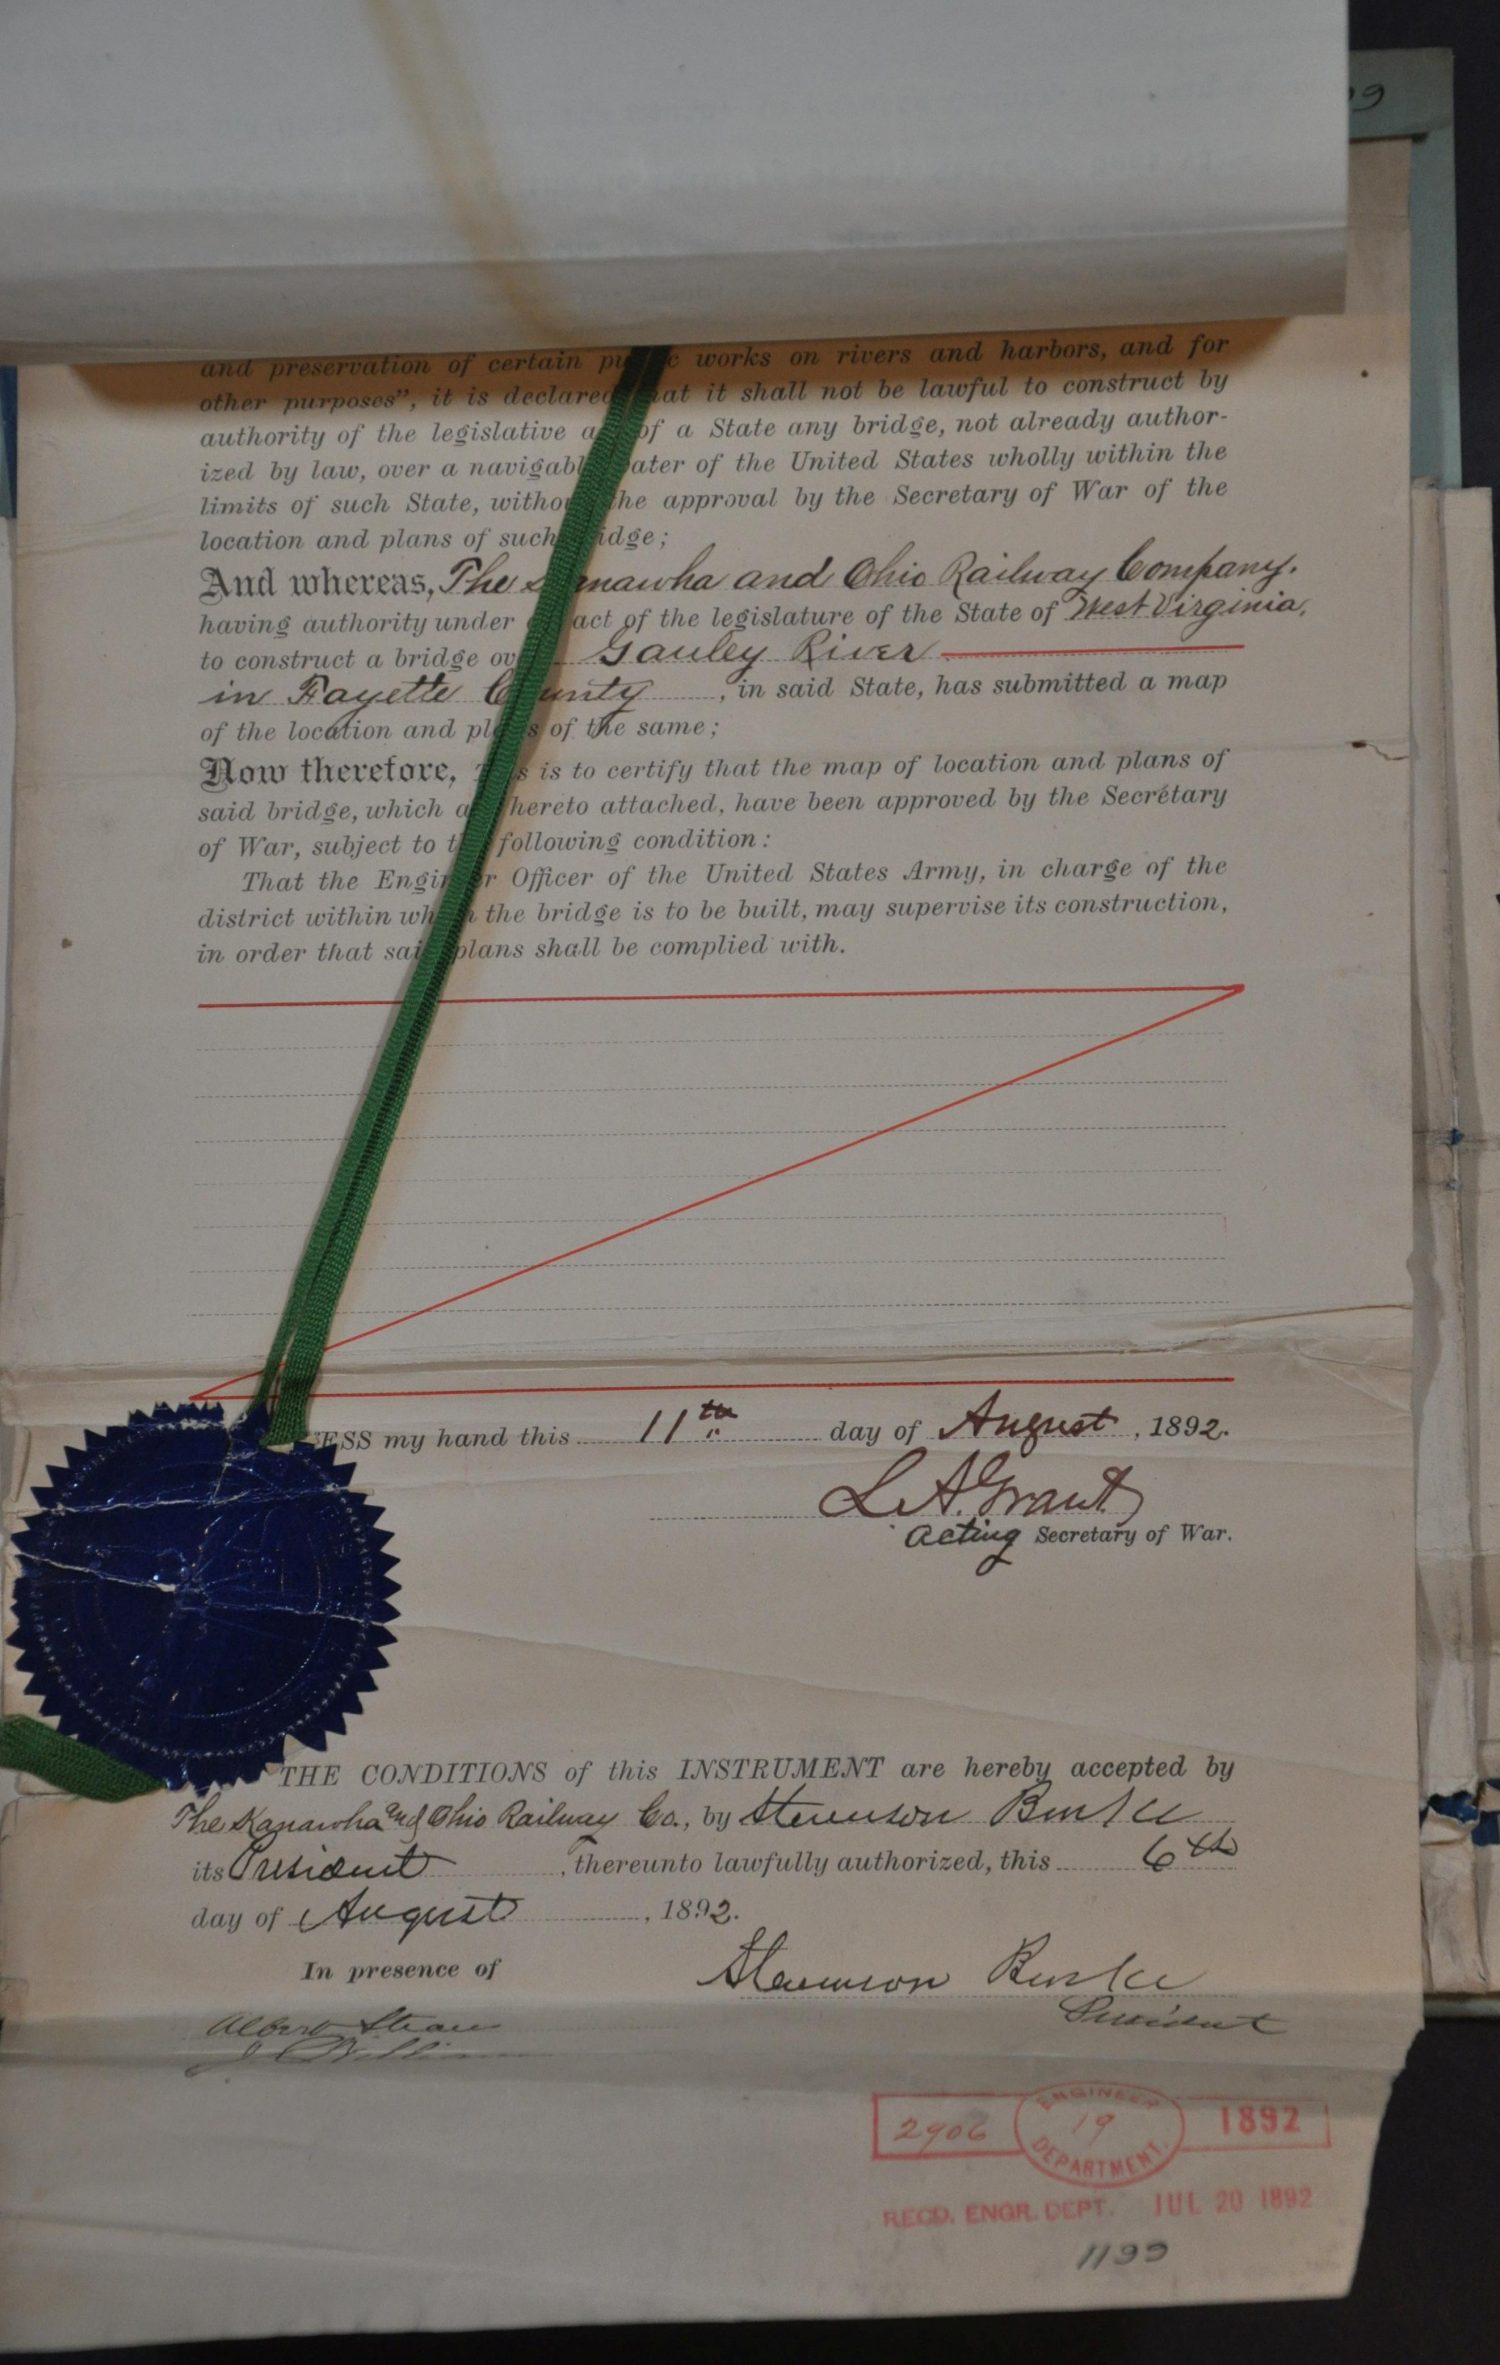 09
and preservation of certain pu c works on rivers and harbors, and for
other purposes", it is declared hat it shall not be lawful to construct by
authority of the legislative a of a State any bridge, not already author-
ized by law, over a navigabl ater of the United States wholly within the
limits of such State, withou the approval by the Secretary of War of the
location and plans of such idge;
And whereas, The K nawha and Ohio Railway Company.
having authority under act of the legislature of the State of West Virginia,
to construct a bridge ov Gauley River
in Fayette County, in said State, has submitted a map
of the location and pl s of the same;
Now therefore, This is to certify that the map of location and plans of
said bridge, which a hereto attached, have been approved by the Secretary
of War, subject to t following condition:
That the Engineer Officer of the United States Army, in charge of the
district within wh h the bridge is to be built, may supervise its construction,
in order that said plans shall be complied with.
ESS my hand this 11th day of August, 1892.
L. A. Grant
Acting Secretary of War.
THE CONDITIONS of this INSTRUMENT are hereby accepted by
The Kanawha and Ohio Railway Co., by Stevenson Burke
its President, thereunto lawfully authorized, this 6th
day of August, 1892.
In presence of
Stevenson Burke
President
Albert
2906 ENGINEER 19 DEPARTMENT. 1892
RECD. ENGR. DEPT. JUL 20 1892
1199